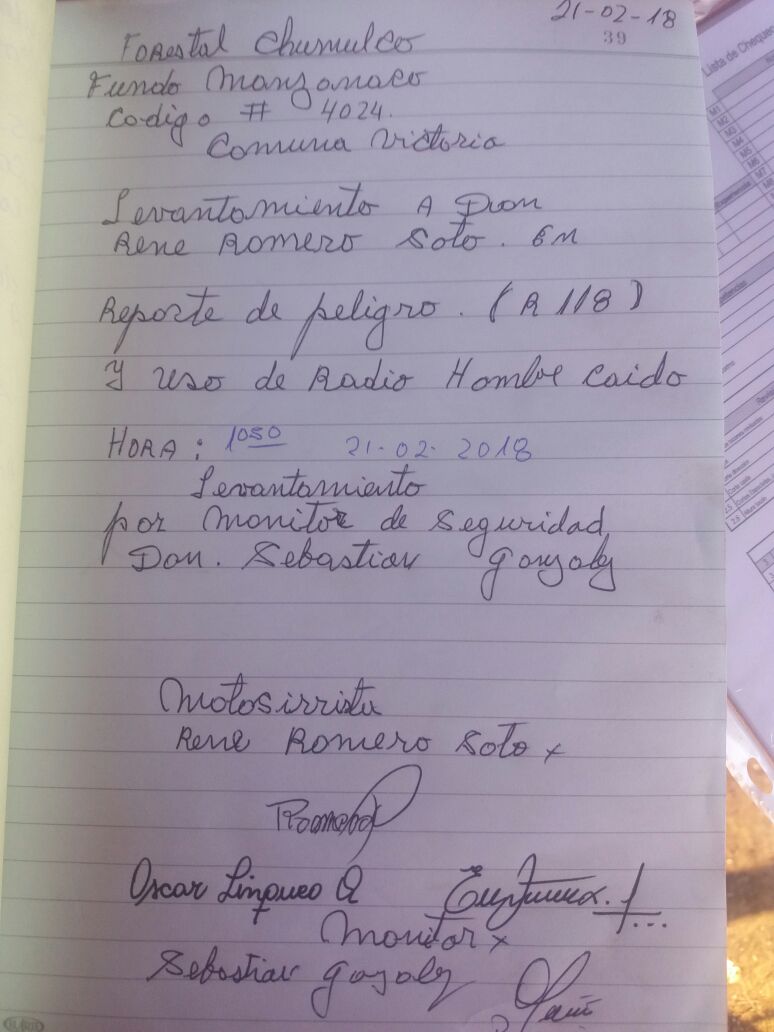 21-02-18
39
Forestal Chumulco
Fundo Manzanaco
Codigo # 4024.
Comuna Victoria
Levantamiento A Don
Rene Romero Soto. EN
Reporte de peligro. (R 118)
Y uso de Radio Hombre Caido
HORA: 1050 21-02-2018
Levantamiento
por Monitor de Seguridad
Don. Sebastian Gonzalez
Motosirrista
Rene Romero Soto x
Romero
Oscar
Q
Monitor x
Sebastian Gozalez
Lista de Cheque
M1
M2
M3
M4
M5
M6
M7